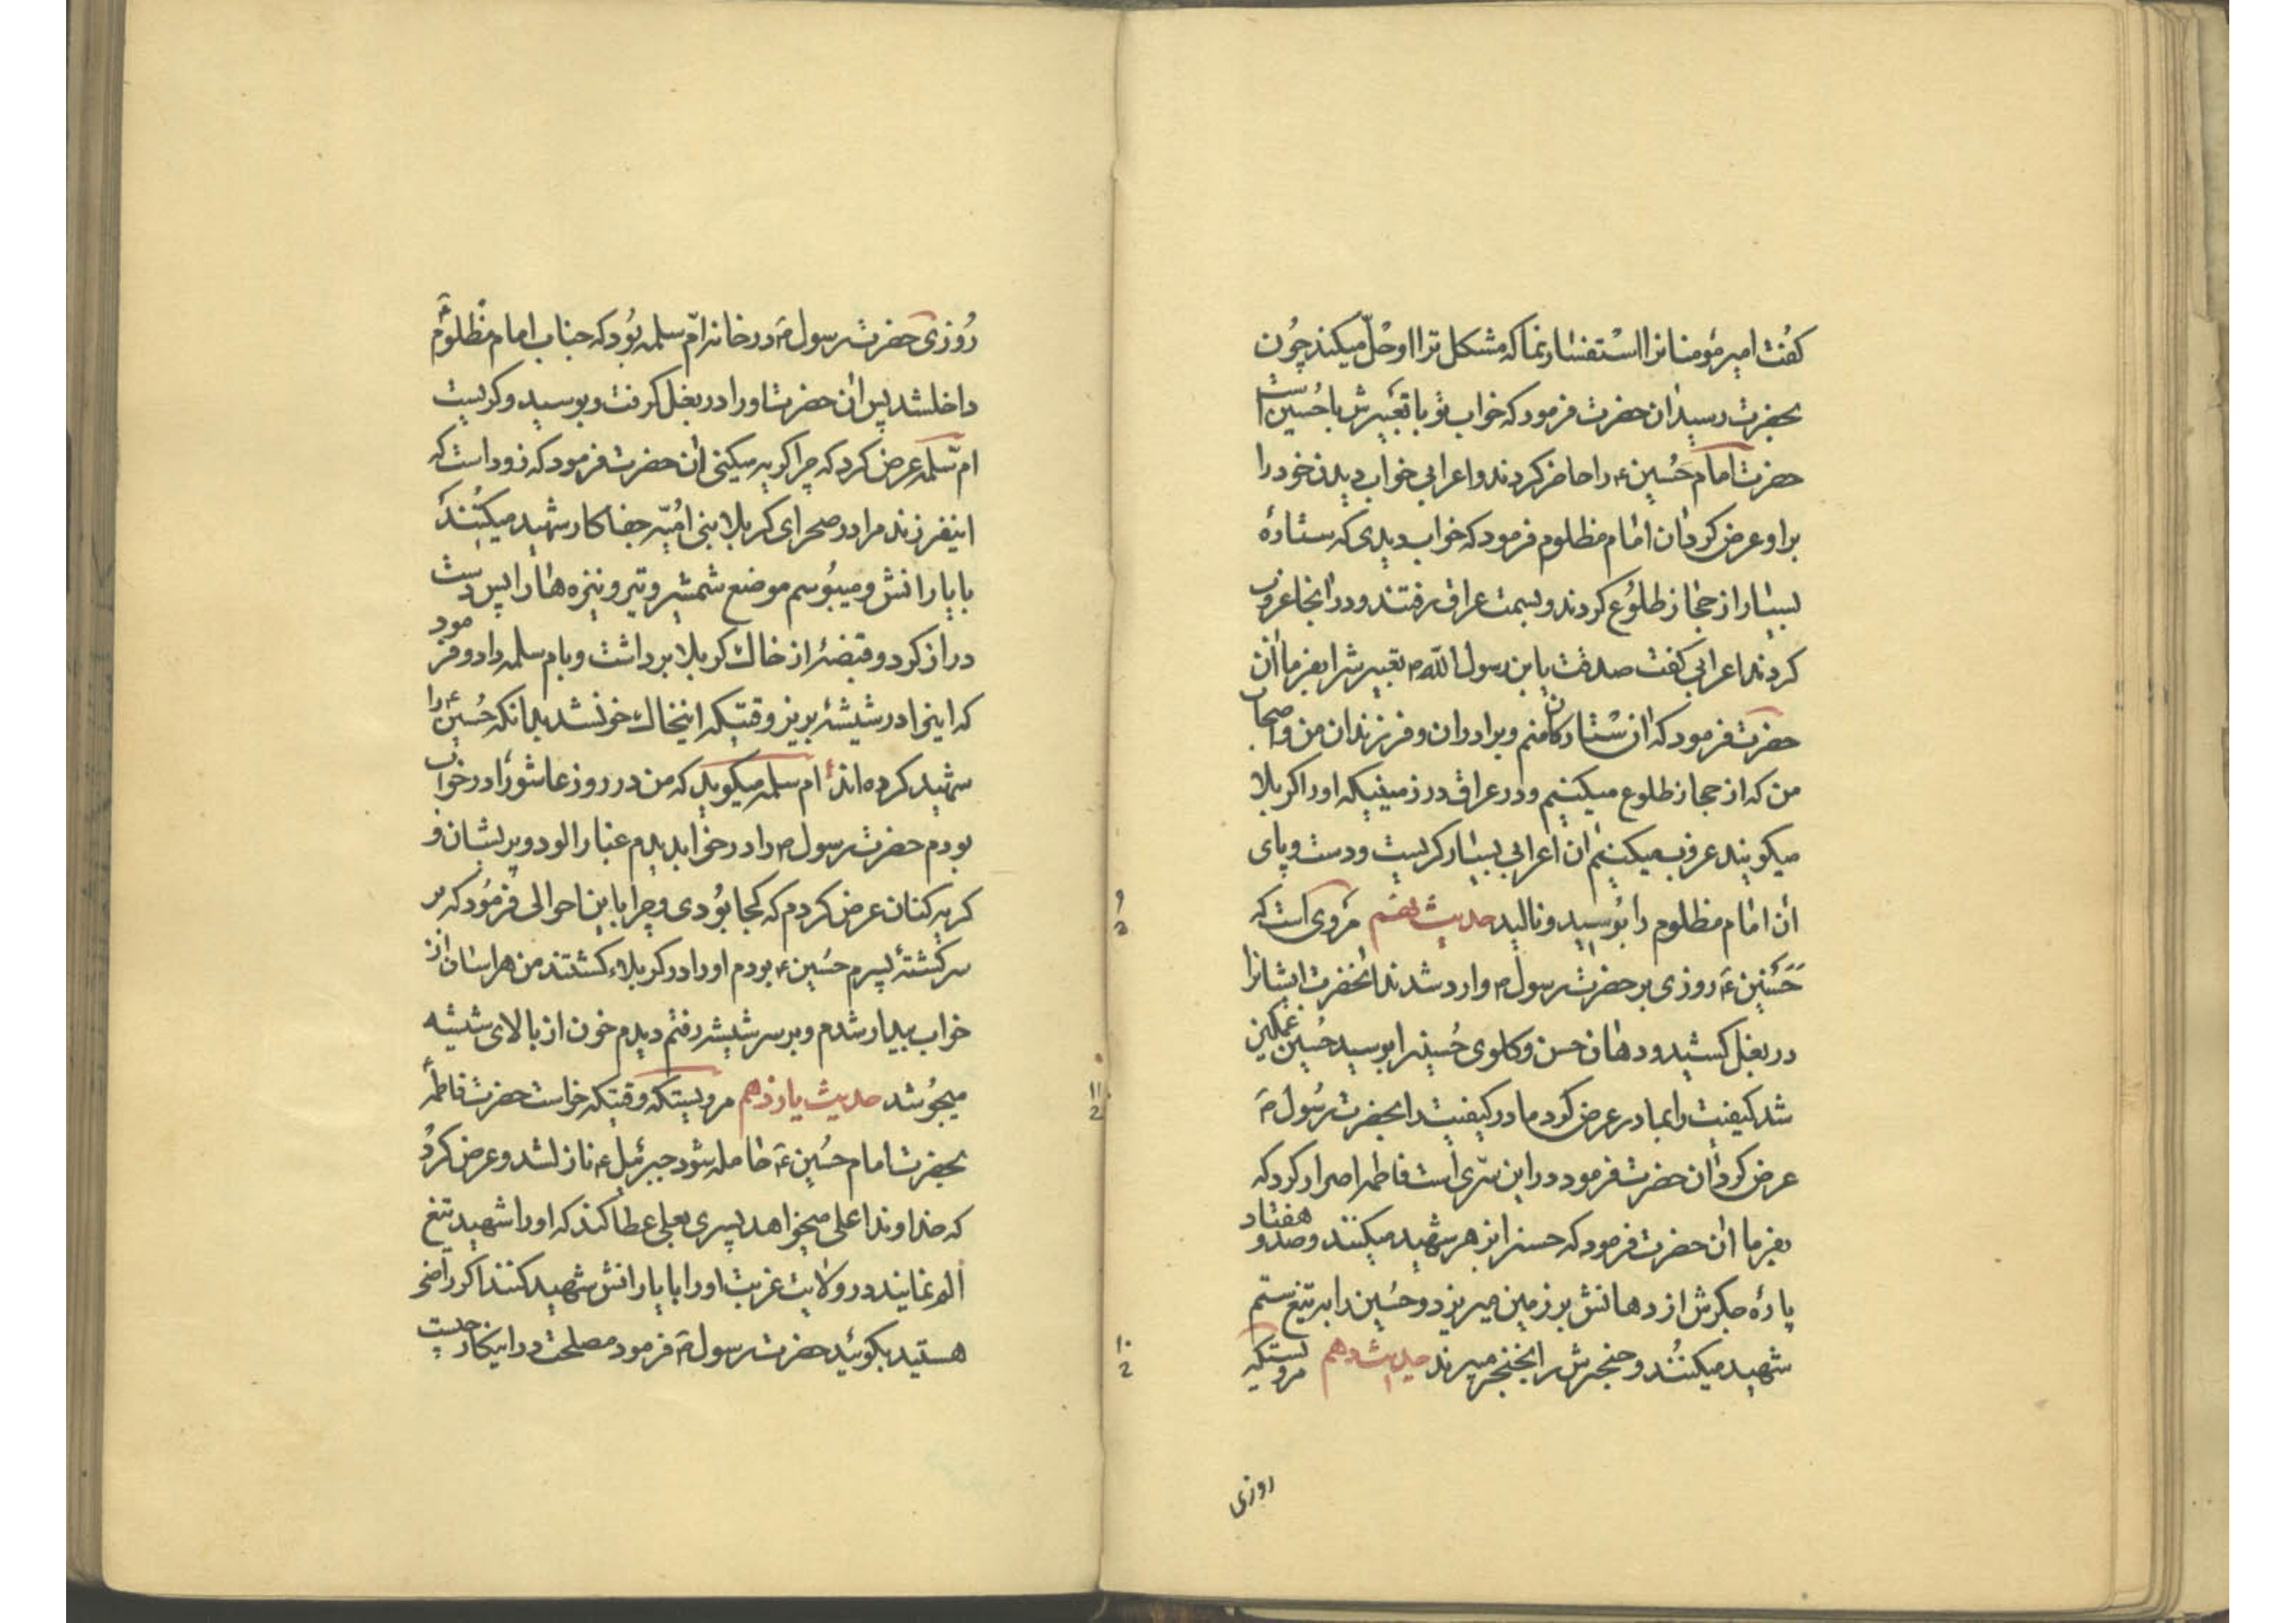 کفت امیر مؤمنانرا استفسار نما که مشکل ترا او حلّ میکند چون
بحضرت رسید ان حضرت فرمود که خواب تو با تعبیرش با حُسین است
حضرت امام حُسین ع را حاضر کردند و اعرابی خواب دیدن خود را
براو عرض کرد ان امام مظلوم فرمود که خواب دیدی که ستارهٔ
بسیار از حجاز طلوع کردند و بسمت عراق رفتند و در انجا غروب
کردند اعرابی کفت صدقت یابن رسول الله ص تعبیرش را بفرما ان
حضرت فرمود که ان ستارکان منم و برادران و فرزندان من و اصحاب
من که از حجاز طلوع میکنیم و در عراق در زمینیکه او را کربلا
میکویند غروب میکنیم ان اعرابی بسیار کریست و دست و پای
ان امام مظلوم را بوسید و نالید حدیث نهم مروی است که
حسنین ع روزی بر حضرت رسول ص وارد شدند انحضرت ایشانرا
در بغل کشید و دهان حسن و کلوی حُسینرا بوسید حُسین غمکین
شد کیفیت را بمادر عرض کرد مادر کیفیت را بحضرت رسُول ص
عرض کرد ان حضرت فرمود در این سرّی است فاطمه اصرار کرد که
بفرما ان حضرت فرمود که حسنرا بزهر شهید میکنند و صد و هفتاد
پارهٔ جکرش از دهانش بر زمین میریزد و حسین را به تیغ ستم
شهید میکنند و حنجرش را بخنجر میبرند حدیث دهم مرویستکه
روزی
روزی حضرت رسول ص در خانه امّ سلمه بود که جناب امام مظلوم ع
داخلشد پس ان حضرت او را در بغل کرفت و بوسید و کریست
ام سلمه عرض کرد که چرا کریه میکنی ان حضرت فرمود که زود است که
اینفرزند مرا در صحرای کربلا بنی امیّه جفا کار شهید میکنند
با یارانش و میبوسم موضع شمشیر و تیر و نیزه ها را پس دست
دراز کرد و قبضهٔ از خاک کربلا برداشت و بام سلمه داد و فرمود
که اینرا در شیشهٔ بریز وقتیکه اینخاک خونشد بدانکه حُسین ع را
شهید کرده اند ام سلمه میکوید که من در روز عاشورا در خواب
بودم حضرت رسول ص را در خواب دیدم غبار الود و پریشان و
کریه کنان عرض کردم که کجا بودی و چرا باین احوالی فرمُود که بر
سر کشتهٔ پسرم حسین ع بودم او را در کربلا کشتند من هراسان از
خواب بیدار شدم و بر سر شیشه رفتم دیدم خون از بالای شیشه
میجوشد حدیث یازدهم مرویستکه وقتیکه خواست حضرت فاطمه ع
بحضرت امام حُسین ع حامله شود جبرئیل ع نازلشد و عرض کرد
که خداوند اعلی میخواهد پسری بعلی عطا کند که او را شهید تیغ
الم نمایند در ولایت غربت او را با یارانش شهید کنند اکر راضی
هستید بکوئید حضرت رسول ص فرمود مصلحت در اینکار چیست
۹
۱۱
2
۱۰
2